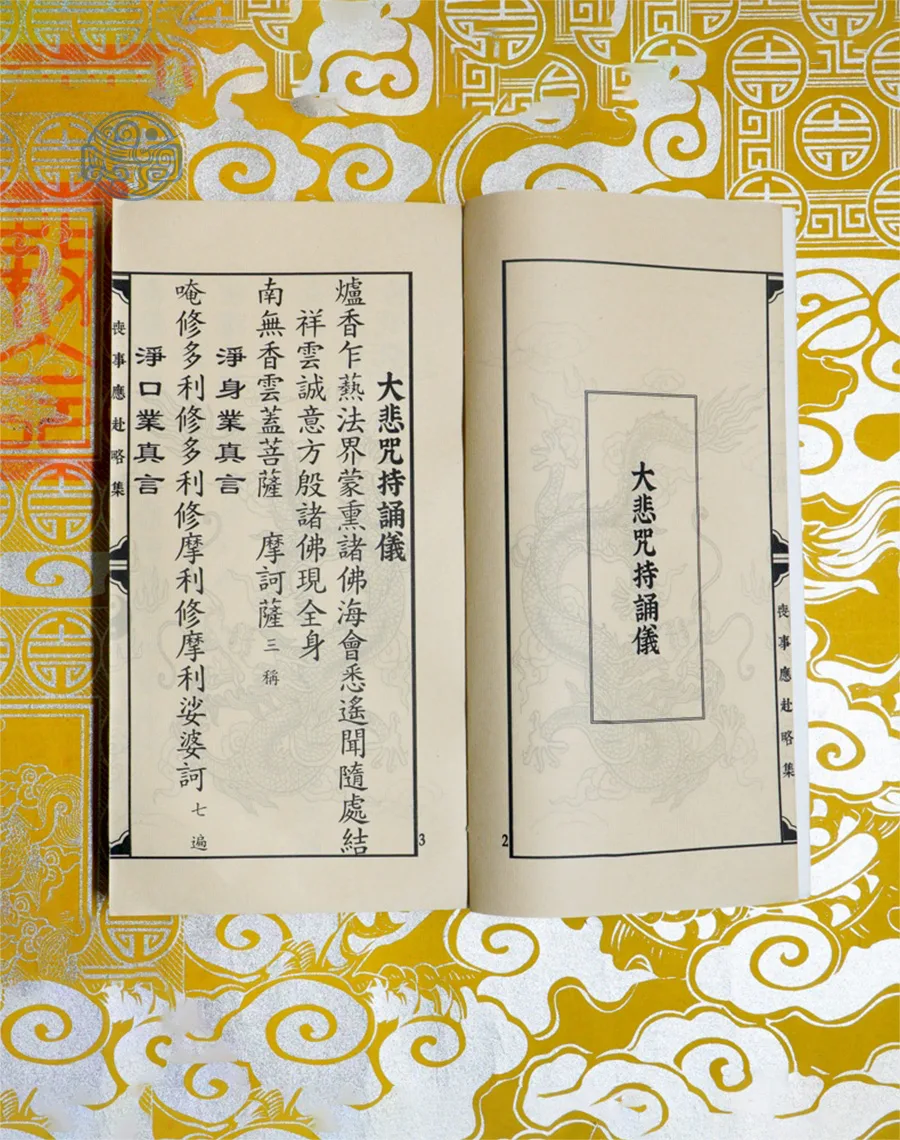 喪事應赴略集
大悲咒持誦儀
2
大悲咒持誦儀
爐香乍爇法界蒙熏諸佛海會悉遙聞隨處結
祥雲誠意方殷諸佛現全身
南無香雲蓋菩薩　摩訶薩三稱
淨身業真言
唵修多利修多利修摩利修摩利娑婆訶七遍
淨口業真言
喪事應赴略集
3